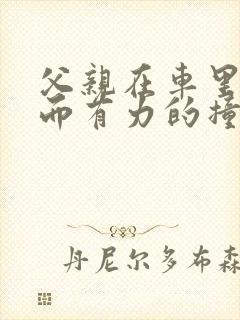 父親在車里
而有力的撞
丹尼尔多布森